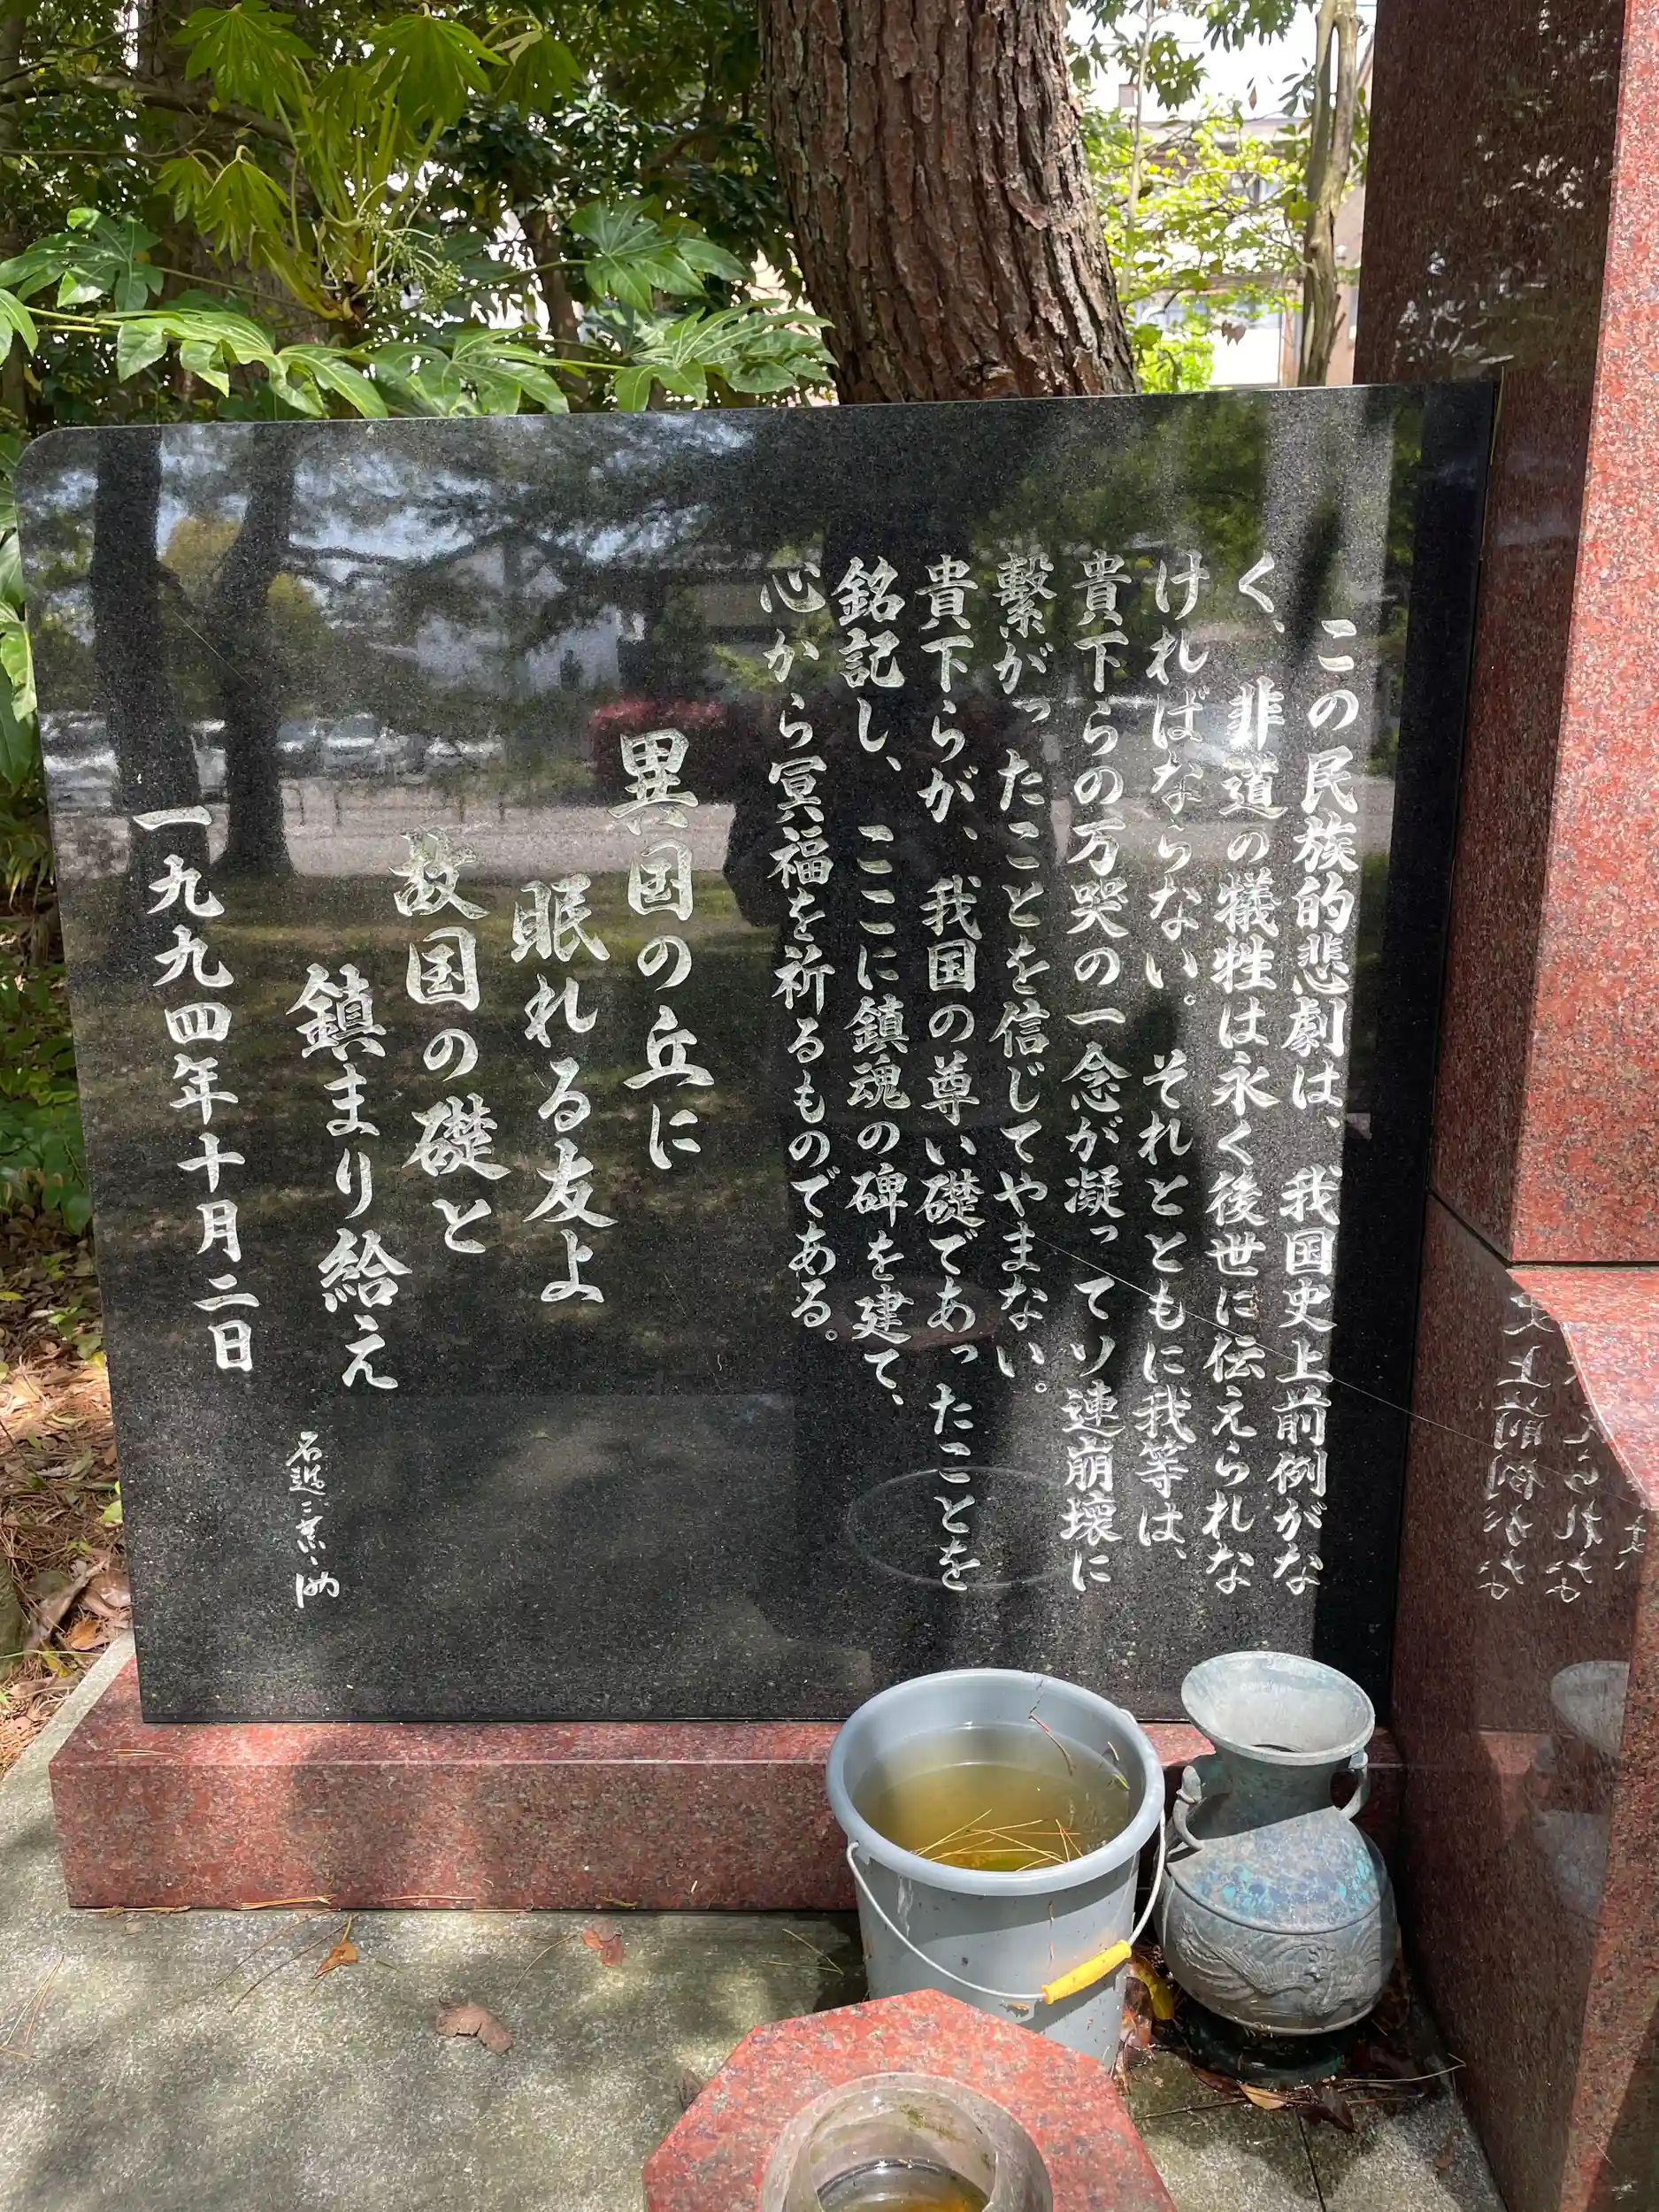 この民族的悲劇は、我国史上前例がな
く、非道の犠牲は永く後世に伝えられな
ければならない。それとともに我等は、
貴下らの万哭の一念が凝ってソ連崩壊に
繋がったことを信じてやまない。
貴下らが、我国の尊い礎であったことを
銘記し、ここに鎮魂の碑を建て、
心から冥福を祈るものである。
異国の丘に
眠れる友よ
故国の礎と
鎮まり給え
一九九四年十月二日